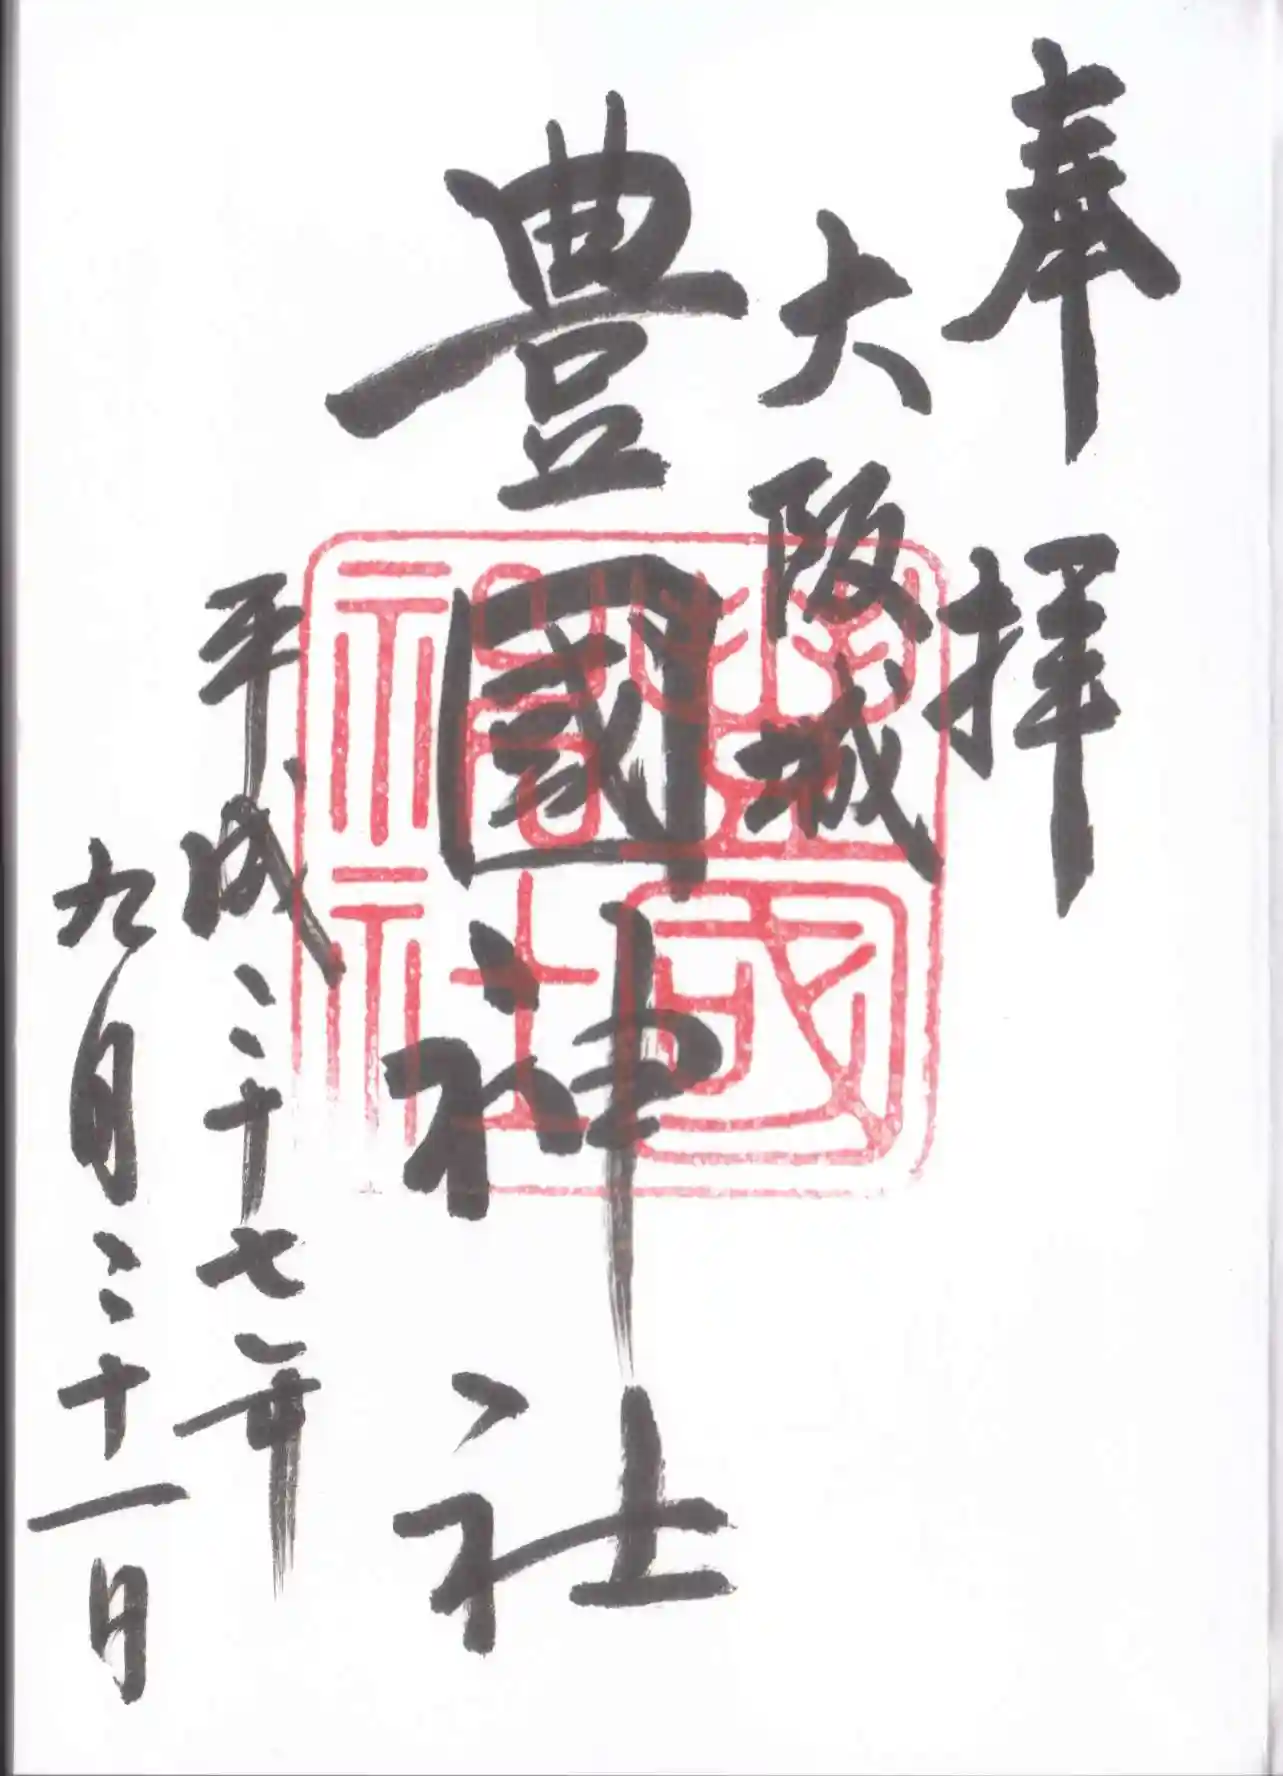 奉拝
大阪城
豊國神社
平成二十七年
九月二十一日
豊國神社